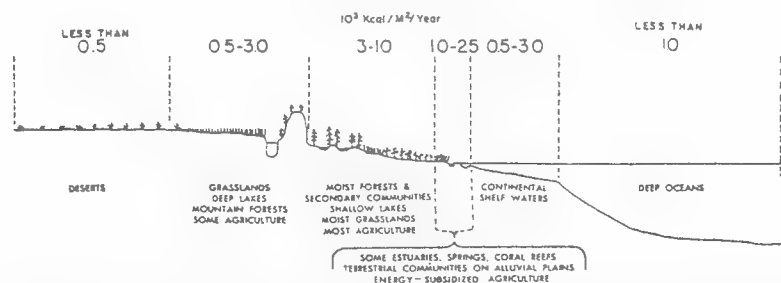 10³ Kcal/M²/Year
LESS THAN
0.5
0.5-3.0
3-10
10-25
0.5-3.0
LESS THAN
1.0
DESERTS
GRASSLANDS
DEEP LAKES
MOUNTAIN FORESTS
SOME AGRICULTURE
MOIST FORESTS &
SECONDARY COMMUNITIES
SHALLOW LAKES
MOIST GRASSLANDS
MOST AGRICULTURE
CONTINENTAL
SHELF WATERS
DEEP OCEANS
SOME ESTUARIES, SPRINGS, CORAL REEFS
TERRESTRIAL COMMUNITIES ON ALLUVIAL PLAINS
ENERGY-SUBSIDIZED AGRICULTURE